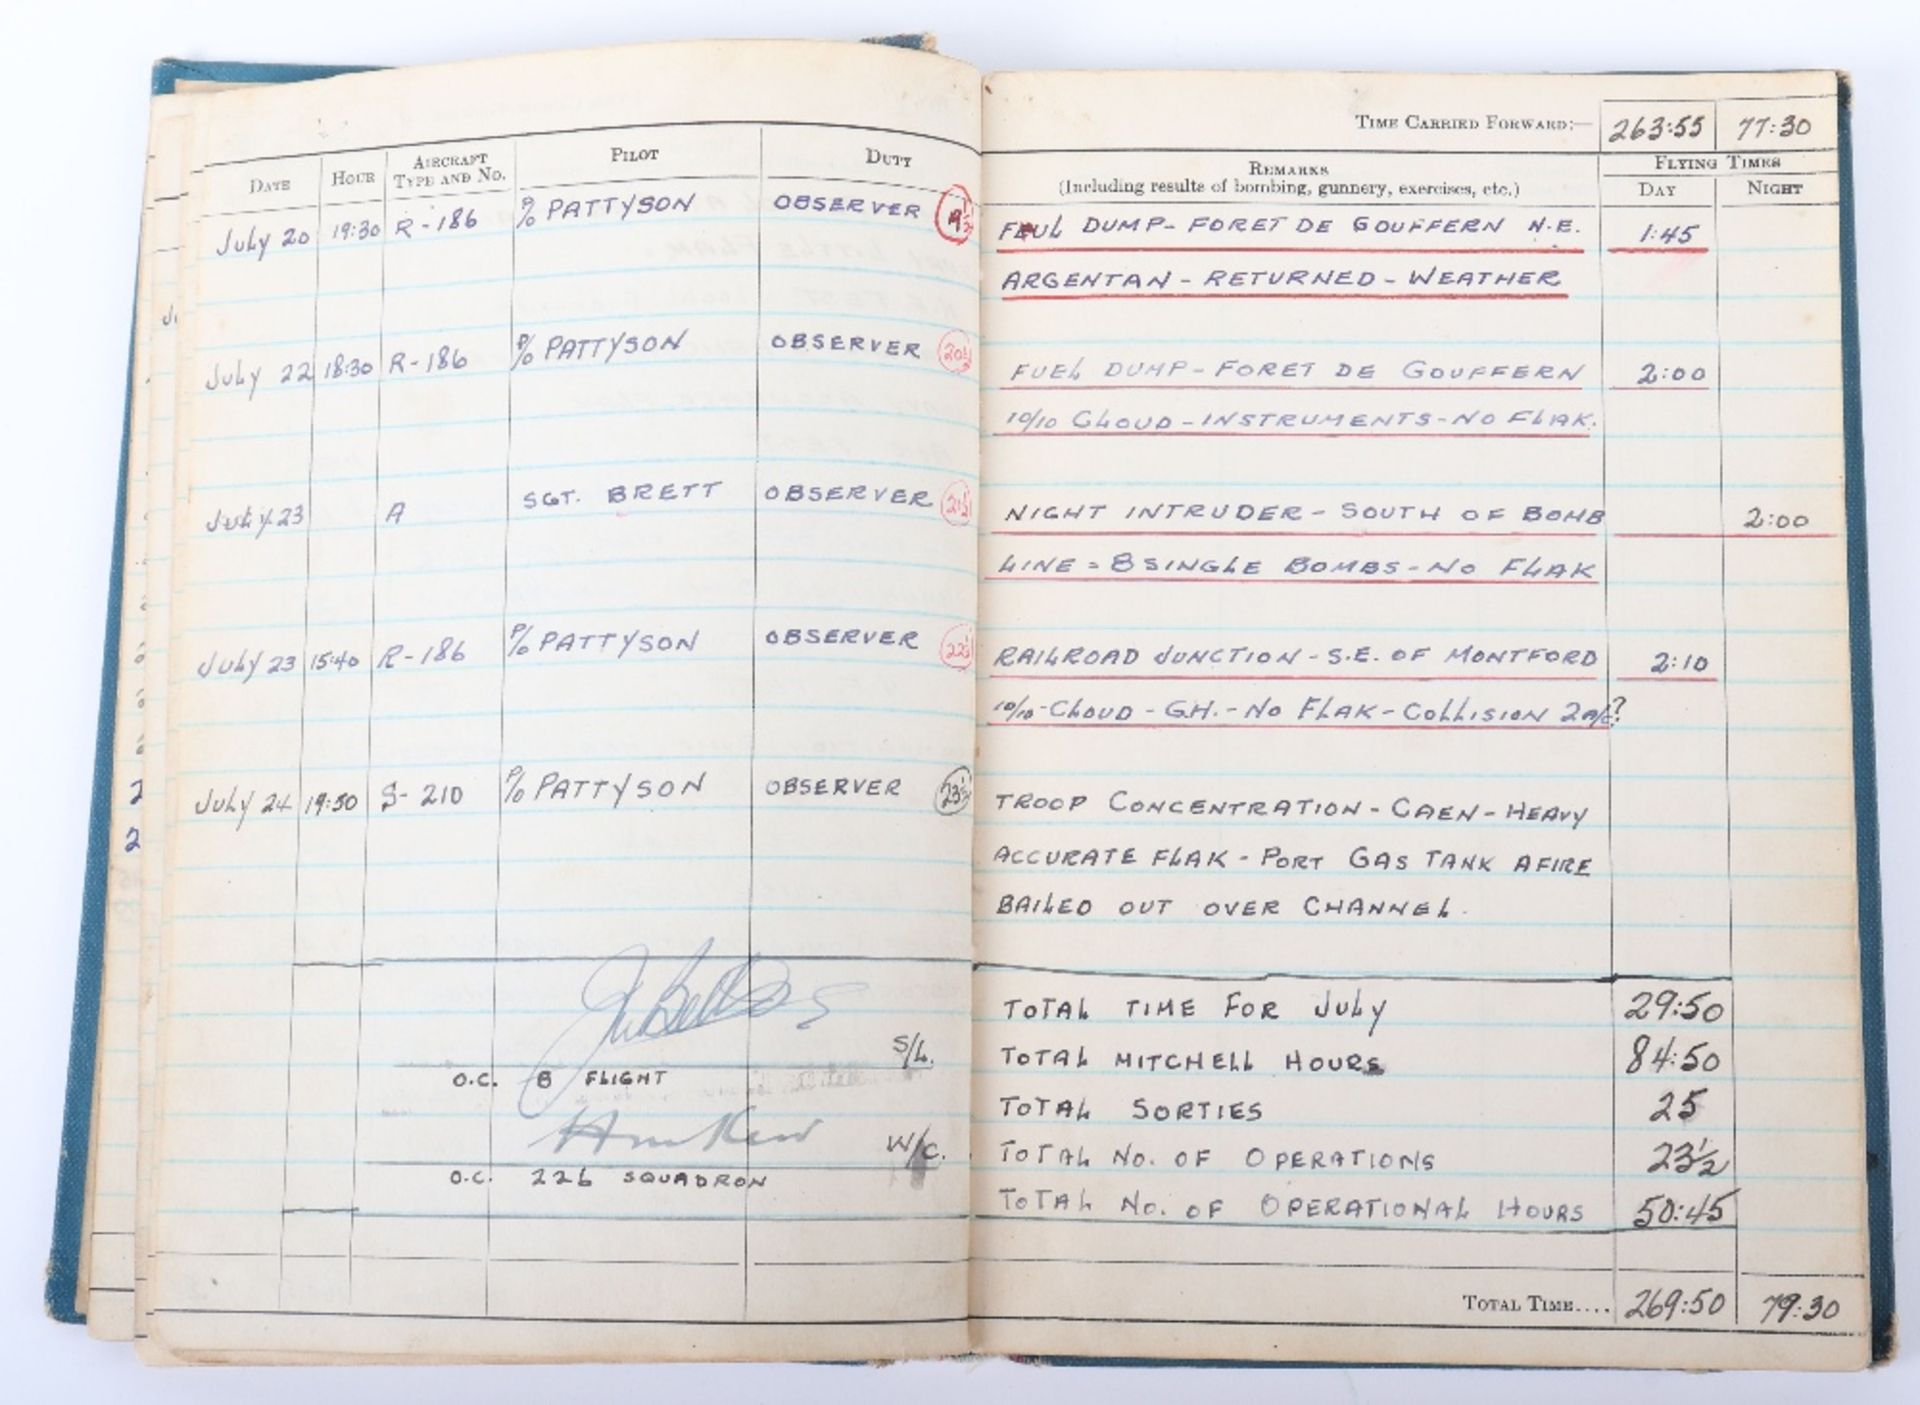 DATE HOUR AIRCRAFT TYPE AND NO. PILOT DUTY
July 20 19:30 R-186 P/O PATTYSON OBSERVER 19½
July 22 18:30 R-186 P/O PATTYSON OBSERVER 20½
July 23 A SGT. BRETT OBSERVER 21½
July 23 15:40 R-186 P/O PATTYSON OBSERVER 22½
July 24 19:50 S-210 P/O PATTYSON OBSERVER 23½
S/L.
O.C. B FLIGHT
W/C.
O.C. 226 SQUADRON
TIME CARRIED FORWARD:— 263:55 77:30
REMARKS
(Including results of bombing, gunnery, exercises, etc.)
FLYING TIMES
DAY NIGHT
FEUL DUMP - FORET DE GOUFFERN N.E. 1:45
ARGENTAN - RETURNED - WEATHER
FUEL DUMP - FORET DE GOUFFERN 2:00
10/10 CLOUD - INSTRUMENTS - NO FLAK.
NIGHT INTRUDER - SOUTH OF BOMB 2:00
LINE = 8 SINGLE BOMBS - NO FLAK
RAILROAD JUNCTION - S.E. OF MONTFORD 2:10
10/10 - CLOUD - G.H. - NO FLAK - COLLISION 2 A/C?
TROOP CONCENTRATION - CAEN - HEAVY
ACCURATE FLAK - PORT GAS TANK AFIRE
BAILED OUT OVER CHANNEL.
TOTAL TIME FOR JULY 29:50
TOTAL MITCHELL HOURS 84:50
TOTAL SORTIES 25
TOTAL NO. OF OPERATIONS 23½
TOTAL NO. OF OPERATIONAL HOURS 50:45
TOTAL TIME.... 269:50 79:30